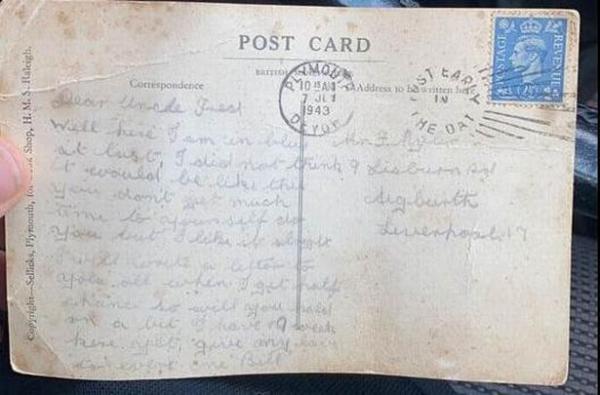 POST CARD
BRITISH
Correspondence
Address to be written here
POSTAGE REVENUE
PLYMOUTH
10 AM
7 JLY
1943
DEVON
POST EARLY
IN
THE DAY
Copyright—Sellicks, Plymouth, Shop, H.M.S. Raleigh.
Dear Uncle Fred
Well here I am in blue
at last, I did not think
it would be like this
you don't get much
time to yourself do
you but I like it alright
I will write a letter to
you all when I get half
a chance so will you hold
on a bit I have 9 week
here yet, give my love
to every one Bill
Mr F.
9 Lisburn Rd
Aigburth
Liverpool. 17